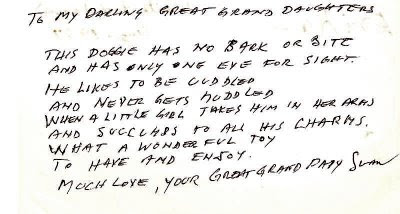 To My Darling Great Grand Daughters
This Doggie has no Bark or Bite
And has only one eye for sight.
He likes to be cuddled
And never gets muddled
When a little girl takes him in her arms
And succumbs to all his charms.
What a wonderful toy
To have and enjoy.
Much Love, your Great Grand Papy